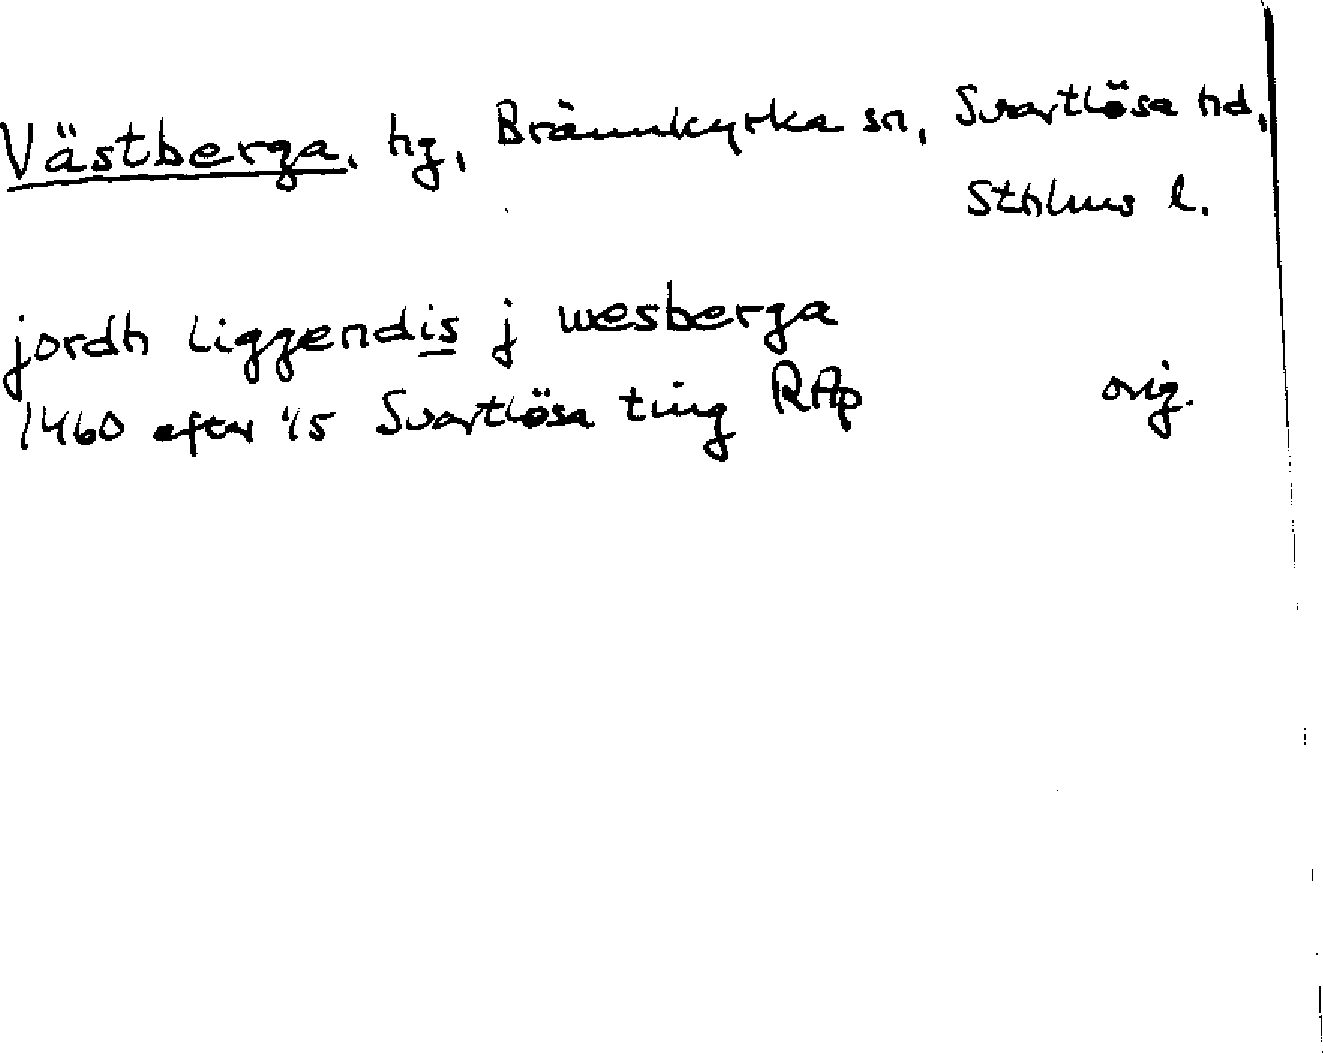 Västberga, hg, Brännkyrka sn, Svartlösa hd,
Sthlms l.
jordh liggendis j wesberga
1460 efter 1/5 Svartlösa ting RAp orig.